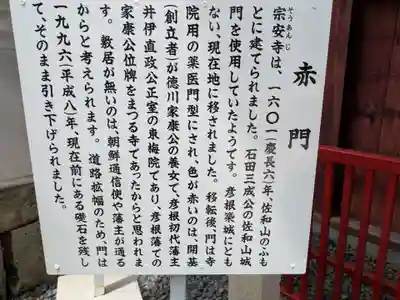 赤門
そうあんじ
宗安寺は、一六〇一(慶長六)年、佐和山のふも
とに建てられました。石田三成公の佐和山城
門を使用していたようです。彦根築城にとも
ない、現在地に移されました。移転後、門は寺
院用の薬医門型にされ、色が赤いのは、開基
(創立者)が徳川家康公の養女で、彦根初代藩主
井伊直政公正室の東梅院であり、彦根藩での
家康公位牌をまつる寺であったからと思われま
す。敷居が無いのは、朝鮮通信使や藩主が通る
からと考えられます。道路拡幅のため、門は
一九九六(平成八)年、現在前にある礎石を残し
て、そのまま引き下げられました。